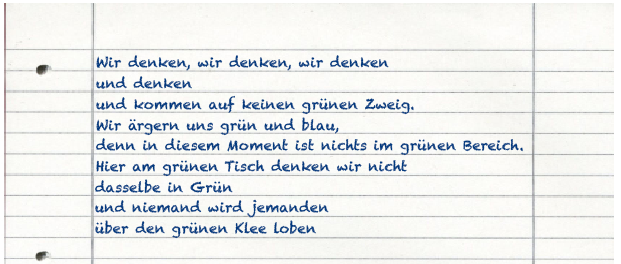 Wir denken, wir denken, wir denken
und denken
und kommen auf keinen grünen Zweig.
Wir ärgern uns grün und blau,
denn in diesem Moment ist nichts im grünen Bereich.
Hier am grünen Tisch denken wir nicht
dasselbe in Grün
und niemand wird jemanden
über den grünen Klee loben